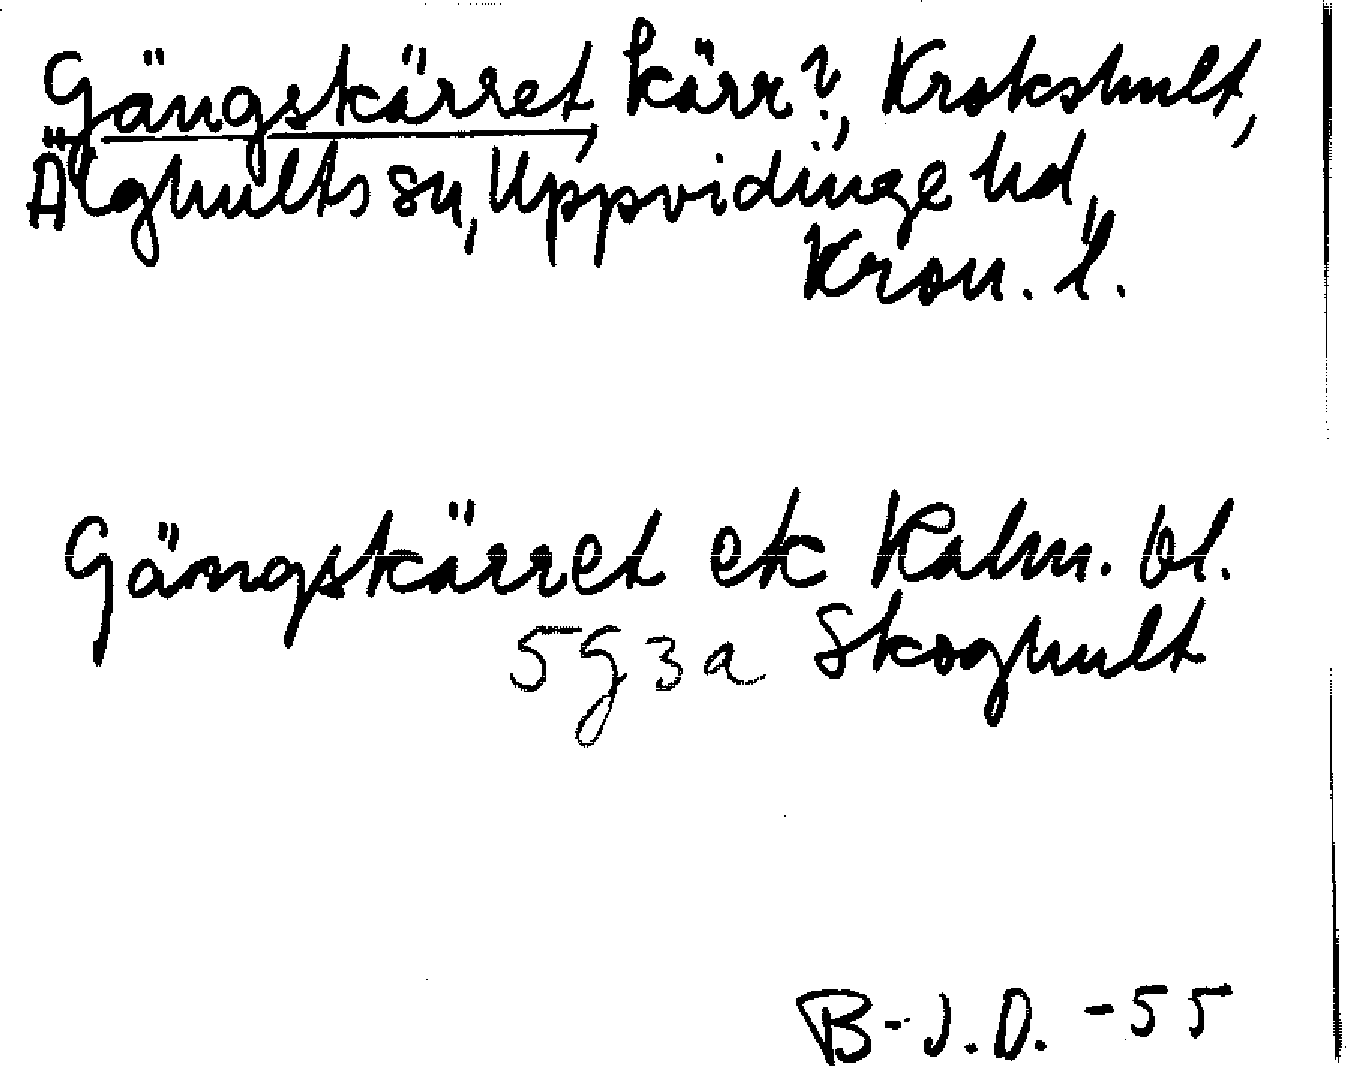 Gängskärret, kärr?, Krokshult,
Älghults sn, Uppvidinge hd,
Kron. l.
Gängskärret ek Kalm. bl.
5g3a Skoghult
B-J.D. -55